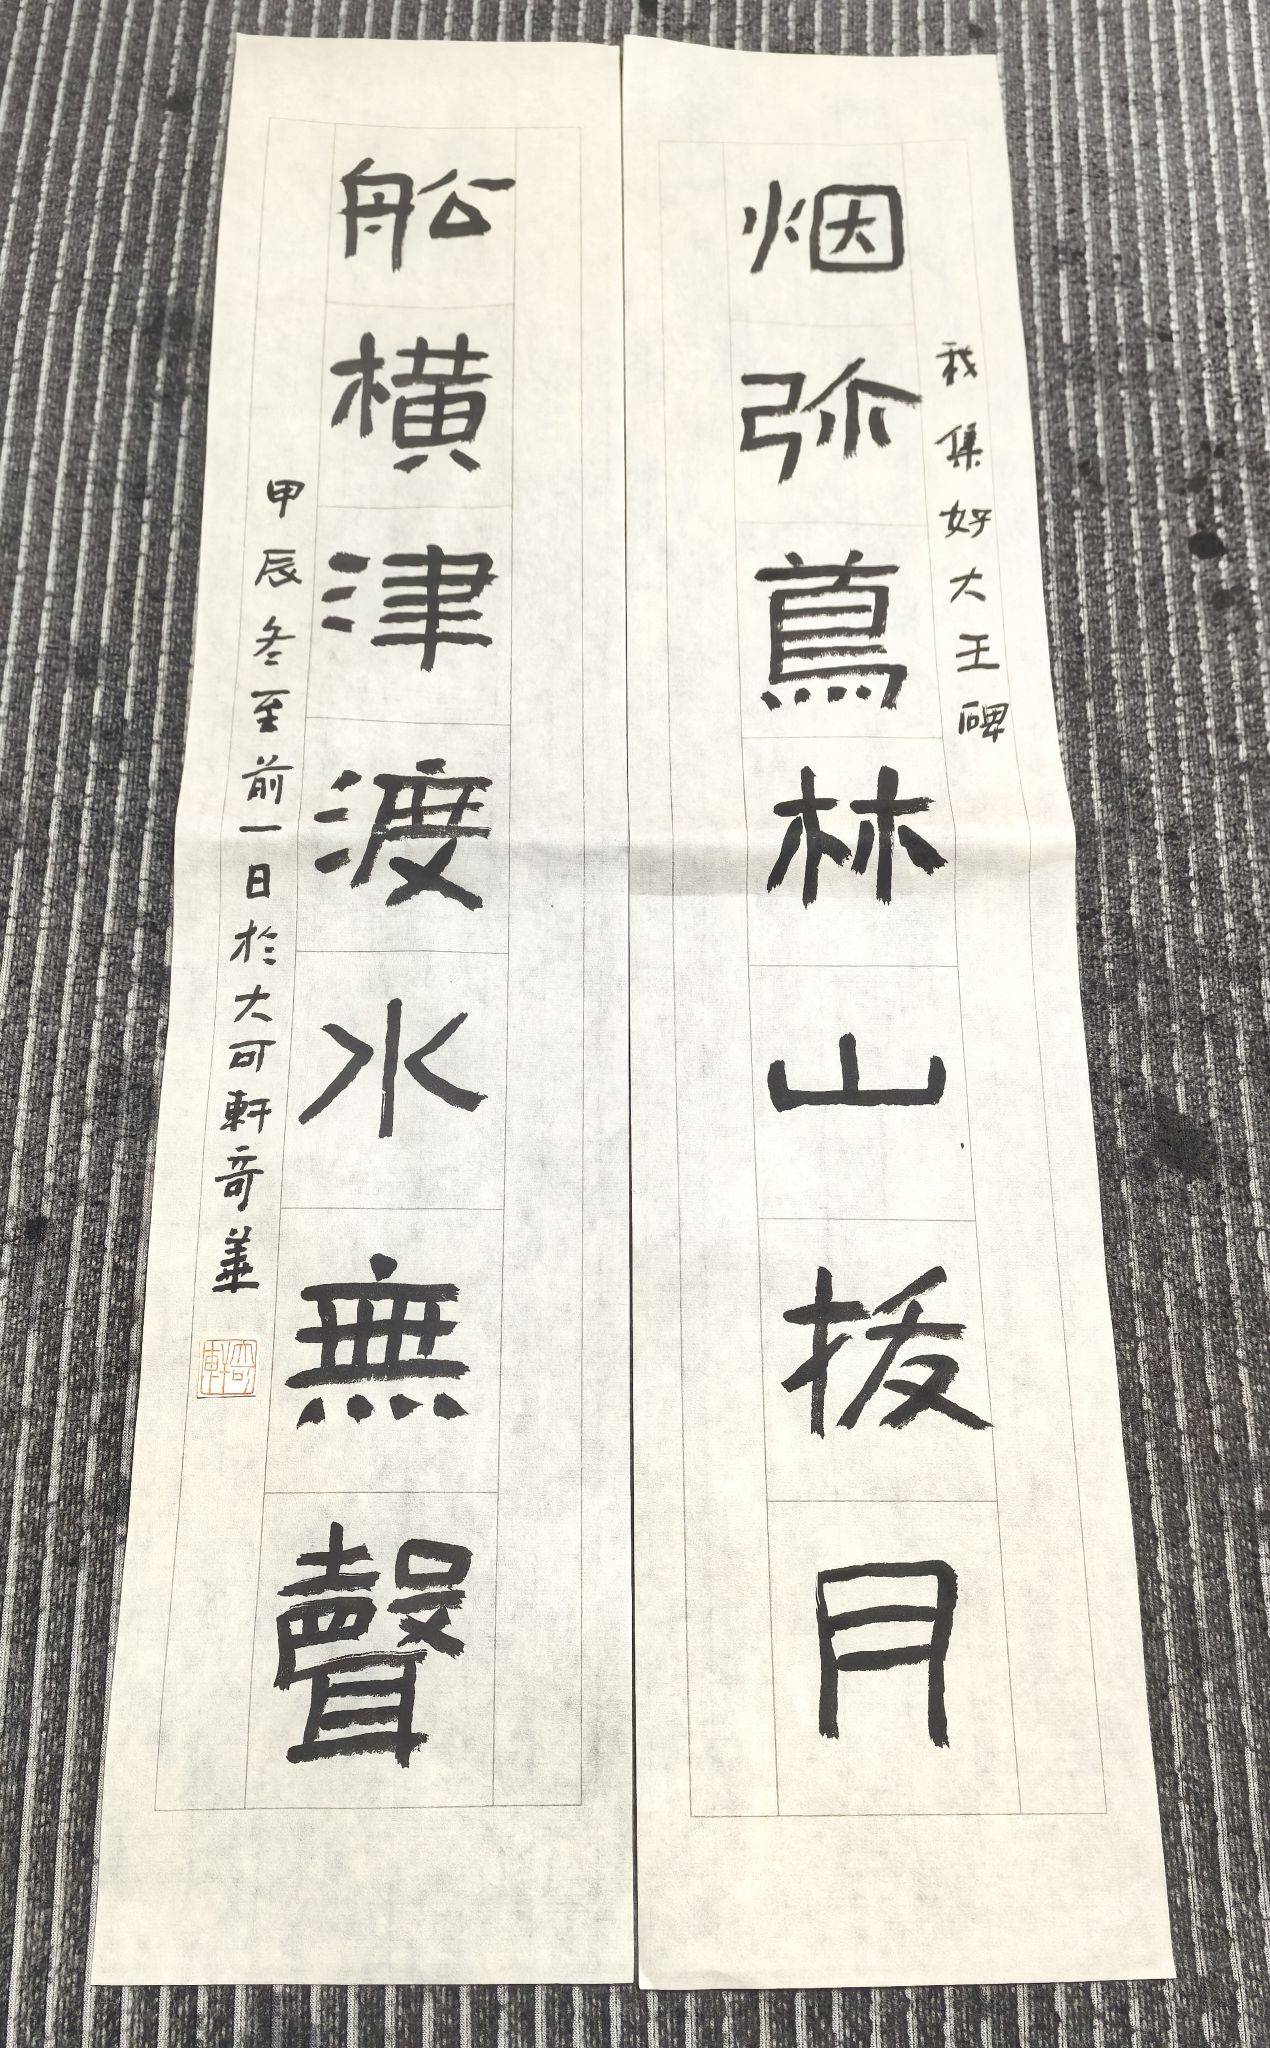 我集好大王碑
烟弥蔦林山拔月
船橫津渡水無聲
甲辰冬至前一日於大可軒奇華